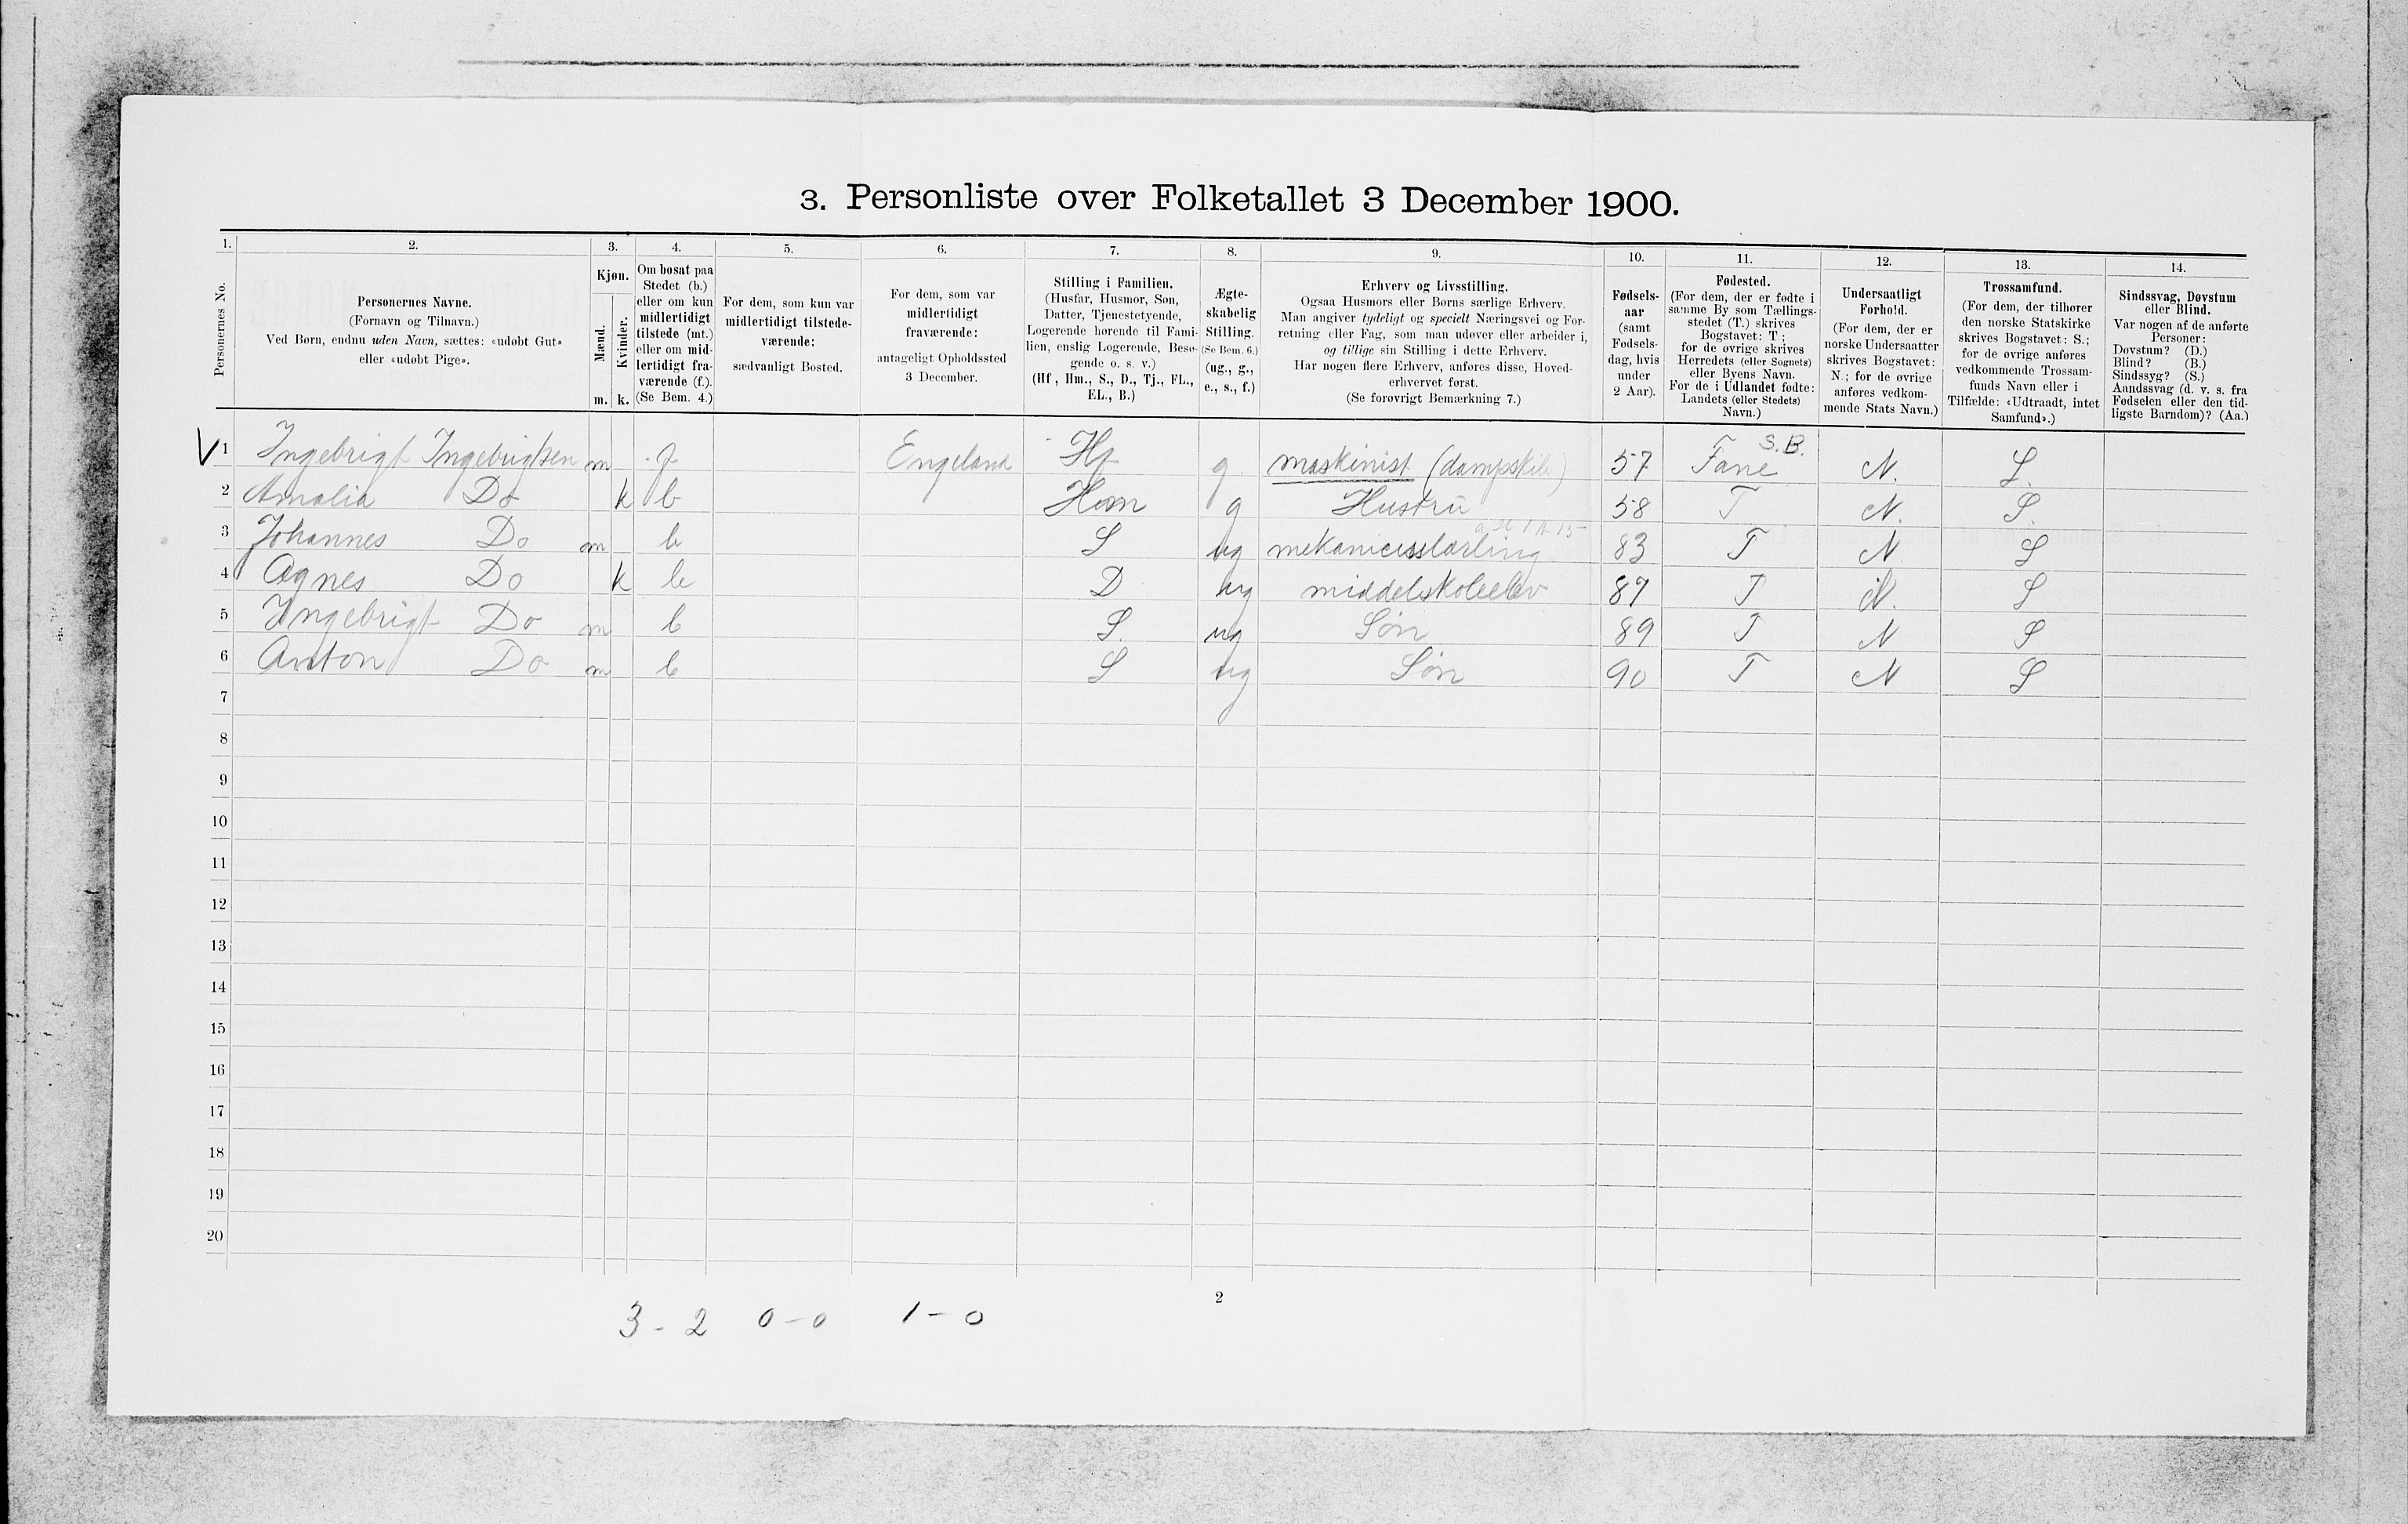 3. Personliste over Folketallet 3 December 1900.
1. 2. 3. 4. 5. 6. 7. 8. 9. 10. 11. 12. 13. 14.
Personernes No.
Personernes Navne.
(Fornavn og Tilnavn.)
Ved Børn, endnu uden Navn, sættes: «udøbt Gut»
eller «udøbt Pige».
Kjøn.
Mænd.
Kvinder.
m. k.
Om bosat paa
Stedet (b.)
eller om kun
midlertidigt
tilstede (mt.)
eller om mid-
lertidigt fra-
værende (f.).
(Se Bem. 4.)
For dem, som kun var
midlertidigt tilstede-
værende:
sædvanligt Bosted.
For dem, som var
midlertidigt
fraværende:
antageligt Opholdssted
3 December.
Stilling i Familien.
(Husfar, Husmor, Søn,
Datter, Tjenestetyende,
Logerende hørende til Fami-
lien, enslig Logerende, Besø-
gende o. s. v.)
(Hf, Hm., S., D., Tj., FL.,
EL., B.)
Ægte-
skabelig
Stilling.
(Se Bem. 6.)
(ug., g.,
e., s., f.)
Erhverv og Livsstilling.
Ogsaa Husmors eller Børns særlige Erhverv.
Man angiver tydeligt og specielt Næringsvei og For-
retning eller Fag, som man udøver eller arbeider i,
og tillige sin Stilling i dette Erhverv.
Har nogen flere Erhverv, anføres disse, Hoved-
erhvervet først.
(Se forøvrigt Bemærkning 7.)
Fødsels-
aar
(samt
Fødsels-
dag, hvis
under
2 Aar).
Fødested.
(For dem, der er fødte i
samme By som Tællings-
stedet (T.) skrives
Bogstavet: T;
for de øvrige skrives
Herredets (eller Sognets)
eller Byens Navn.
For de i Udlandet fødte:
Landets (eller Stedets)
Navn.)
Undersaatligt
Forhold.
(For dem, der er
norske Undersaatter
skrives Bogstavet:
N.; for de øvrige
anføres vedkom-
mende Stats Navn.)
Trossamfund.
(For dem, der tilhører
den norske Statskirke
skrives Bogstavet: S.;
for de øvrige anføres
vedkommende Trossam-
funds Navn eller i
Tilfælde: «Udtraadt, intet
Samfund».)
Sindssvag, Døvstum
eller Blind.
Var nogen af de anførte
Personer:
Døvstum? (D.)
Blind? (B.)
Sindssyg? (S.)
Aandssvag (d. v. s. fra
Fødselen eller den tid-
ligste Barndom)? (Aa.)
S.B.
V 1 Ingebrigt Ingebrigtsen m f Engeland Hf g. maskinist (dampskib) 57 Fane N. S.
2 Amalia Do k b Hom g Hustru 58 T N. S.
3 Johannes Do m b S ug mekanicusslærling 83 T N S
4 Agnes Do k b D ug middelskoleelev 87 T N. S
5 Ingebrigt Do m b S. ug Søn 89 T N S
6 Anton Do m b S ug Søn 90 T N S
7
8
9
10
11
12
13
14
15
16
17
18
19
20
2
3 - 2 0 - 0 1 - 0